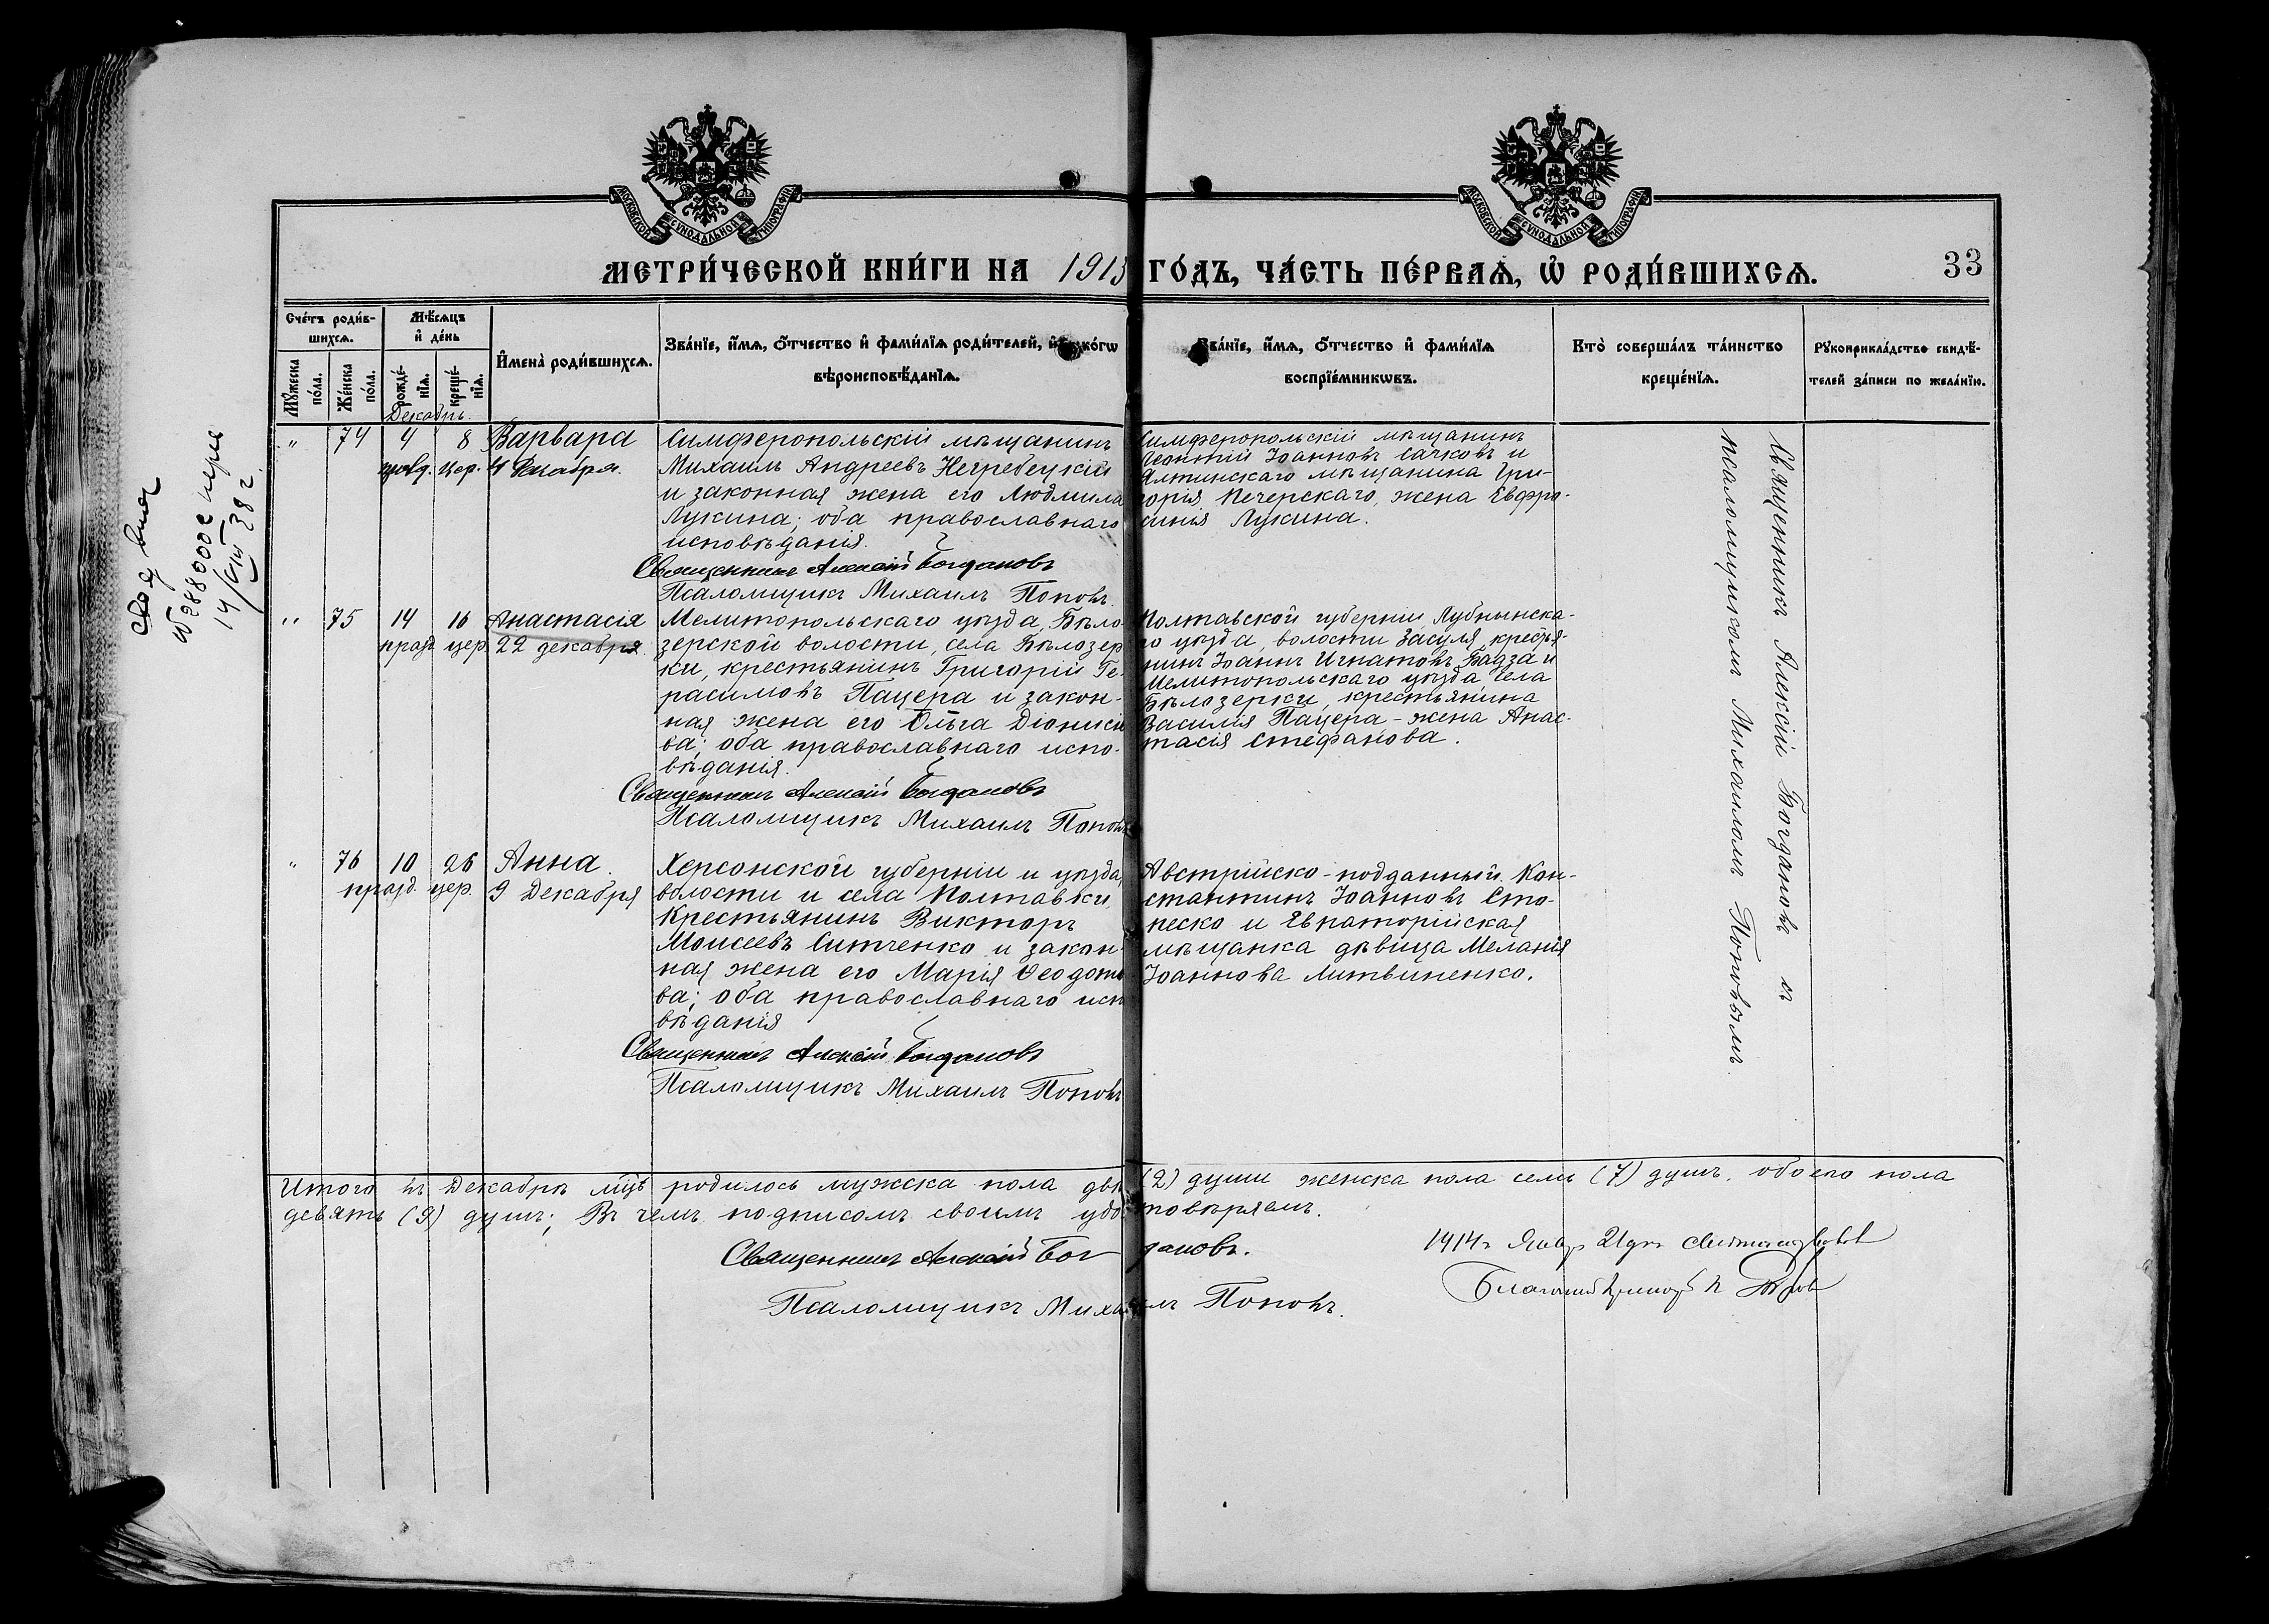 МОСКОВСКОЙ СУНОДАЛЬНОЙ ТИПОГРАФІИ
МОСКОВСКОЙ СУНОДАЛЬНОЙ ТИПОГРАФІИ
МЕТРИ́ЧЕСКОЙ КНИ́ГИ НА 1913 ГО́ДЪ, ЧА́СТЬ ПЕ́РВАѦ, Ѡ РОДИ́ВШИХСѦ.
33
Сче́тъ роди́в-
шихсѧ.
Мꙋ́жеска по́ла.
Же́нска по́ла.
Мѣ́сѧцъ
и де́нь
рожде́-
нїѧ.
креще́-
нїѧ.
Имена̀ роди́вшихсѧ.
Зва́нїе, и́мѧ, о́тчество и фами́лїѧ роди́телей, и како́гѡ
вѣроисповѣ́данїѧ.
Зва́нїе, и́мѧ, о́тчество и фами́лїѧ
воспрїе́мникѡвъ.
Кто̀ соверша́лъ та́инство
креще́нїѧ.
Рꙋкоприкла́дство свидѣ́-
телей за́писи по жела́нїю.
Декабрь.
" 74 4 8 Варвара
цер. 4 Декабря.
Симферопольскій мѣщанинъ
Михаилъ Андреевъ Негребецкій
и законная жена его Людмила
Лукина; оба православнаго
исповѣданія.
Священникъ Алексій Богдановъ
Псаломщикъ Михаилъ Поповъ.
Симферопольскій мѣщанинъ
Леонтій Іоанновъ Сачковъ и
Ялтинскаго мѣщанина Гри-
горія Печерскаго, жена Евфро-
синія Лукина.
" 75 14 16 Анастасія
цер. 22 декабря.
Мелитопольскаго уѣзда, Бѣло-
зерской волости, села Бѣлозер-
ки, крестьянинъ Григорій Ге-
расимовъ Пацера и закон-
ная жена его Ольга Діонисіе-
ва; оба православнаго испо-
вѣданія.
Священникъ Алексій Богдановъ
Псаломщикъ Михаилъ Поповъ
Полтавской губерніи, Лубнынска-
го уѣзда, волости Засуля, крестья-
нинъ Іоаннъ Игнатовъ Бадза и
Мелитопольскаго уѣзда, села
Бѣлозерки, крестьянина
Василія Пацера - жена Анас-
тасія Стефанова.
" 76 10 26 Анна.
цер. 9 Декабря
Херсонской губерніи и уѣзда,
волости и села Полтавки
Крестьянинъ Викторъ
Моисеевъ Ситченко и закон-
ная жена его Марія Ѳеодото-
ва; оба православнаго испо-
вѣданія
Священникъ Алексій Богдановъ
Псаломщикъ Михаилъ Поповъ
Австрійско-подданный Кон-
стантинъ Іоанновъ Сто-
песко и Евпаторійская
мѣщанка дѣвица Меланія
Іоаннова Литвиненко.
Священникъ Алексій Богдановъ съ
псаломщикомъ Михаиломъ Поповымъ.
Итого въ Декабрѣ мцѣ родилось мужска пола двѣ (2) души женска пола семь (7) душъ. обоего пола
девять (9) душъ; Въ чемъ подписомъ своимъ удостовѣряемъ.
Священникъ Алексій Богдановъ.
Псаломщикъ Михаилъ Поповъ.
1914 г. Янвр 21 дня
Благочинный